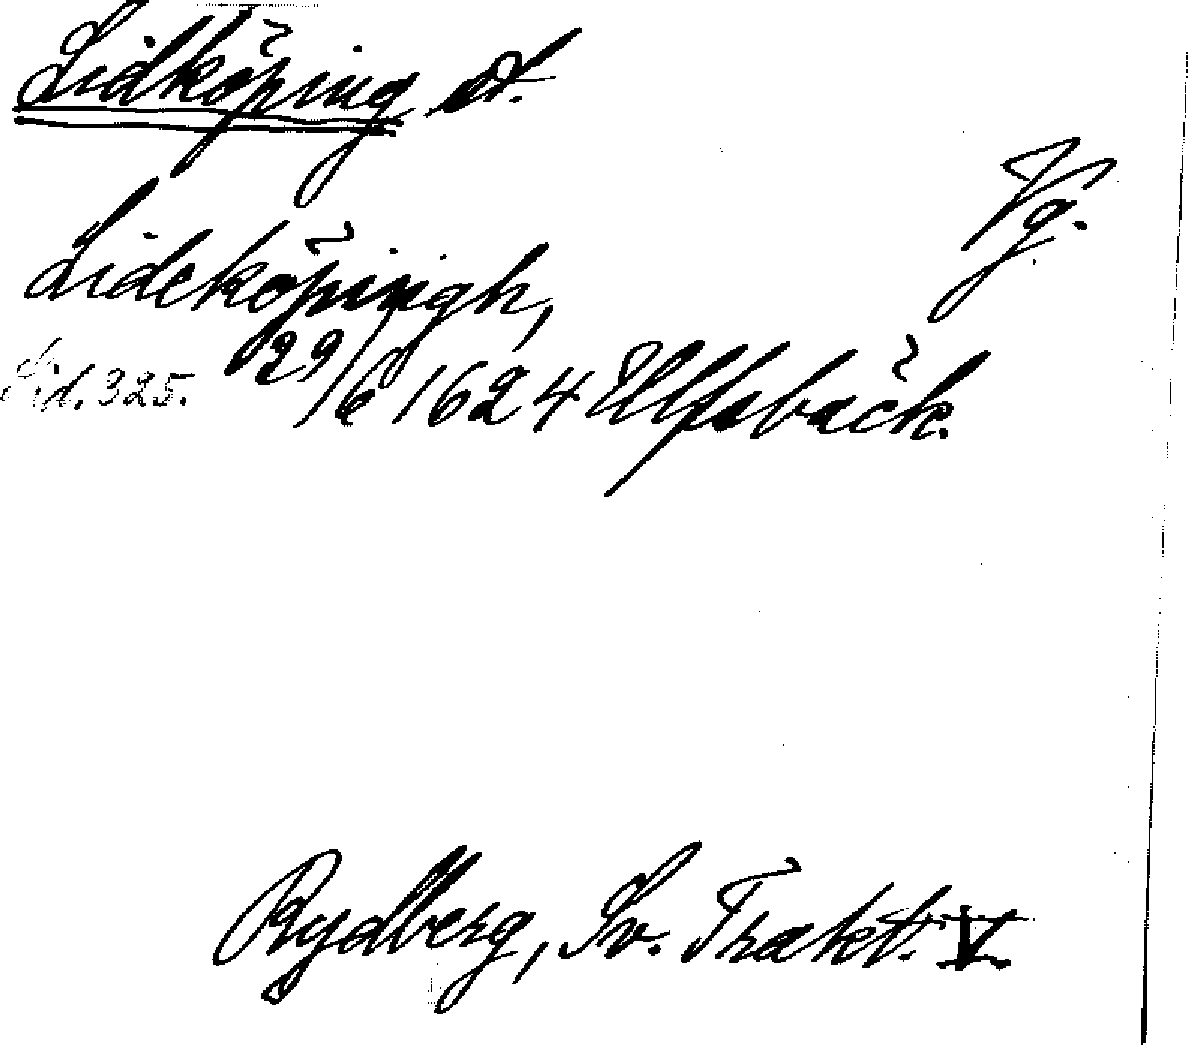 Lidköping st.
Vg.
Lideköpingh,
Sid. 325. 29/6 1624 Ulfsbäck.
Rydberg, Sv. Trakt. V.